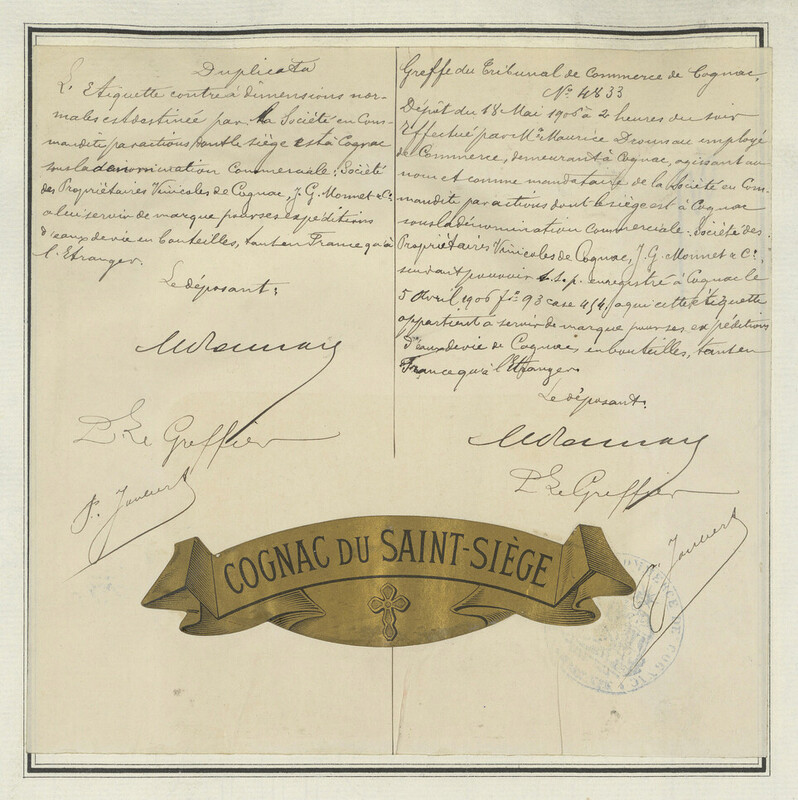 Duplicata
L'Etiquette contre à dimensions nor-
males est destinée par la Société en Com-
mandite par actions dont le siège est à Cognac
sous la dénomination Commerciale: Société
des Propriétaires Vinicoles de Cognac, J. G. Monnet & Cie
a leur servir de marque pour ses expéditions
d'eaux de vie en bouteilles, tant en France qu'à
l'Etranger.
Le déposant:
Le Greffier
Greffe du Tribunal de Commerce de Cognac.
No 4833
Dépôt du 18 Mai 1906 à 2 heures du soir
Effectué par Mr Maurice employé
de Commerce, demeurant à Cognac, agissant au
nom et comme mandataire de la Société en Com-
mandite par actions dont le siège est à Cognac
sous la dénomination commerciale: Société des
Propriétaires Vinicoles de Cognac, J. G. Monnet & Cie
suivant pouvoir s.s.p. enregistré à Cognac le
5 Avril 1906 fo 93 case 454, a qui cette étiquette
appartient à servir de marque pour ses expéditions
d'eaux de vie de Cognac en bouteilles, tant en
France qu'à l'Etranger.
Le déposant.
Le Greffier
COGNAC DU SAINT-SIÈGE
COMMERCE DE COGNAC